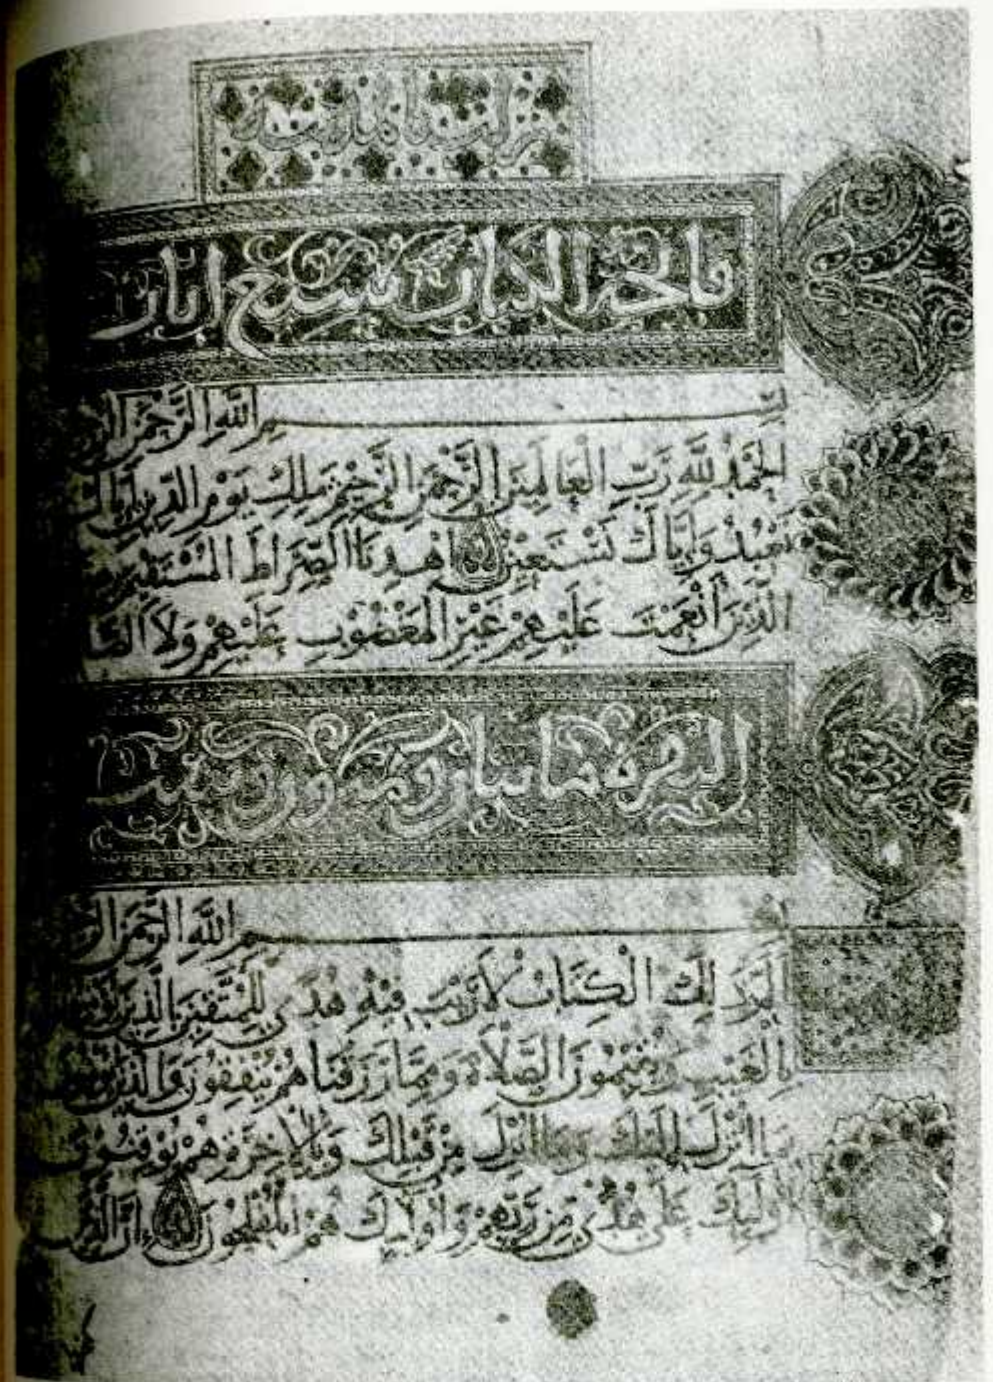 فاتحة الكتاب سبع ايات
بسم الله الرحمن
الحمد لله رب العالمين الرحمن الرحيم ملك يوم الدين اياك
نعبد واياك نستعين اهدنا الصراط المستقيم
الذين انعمت عليهم غير المغضوب عليهم ولا
البقرة مايتان وثمنون
بسم الله الرحمن
الم ذلك الكتاب لا ريب فيه هدى للمتقين الذين
بالغيب ويقيمون الصلاة ومما رزقناهم ينفقون والذين
بما انزل اليك وما انزل من قبلك وبالاخرة هم يوقنون
اولئك على هدى من ربهم واولئك هم المفلحون ان الذين